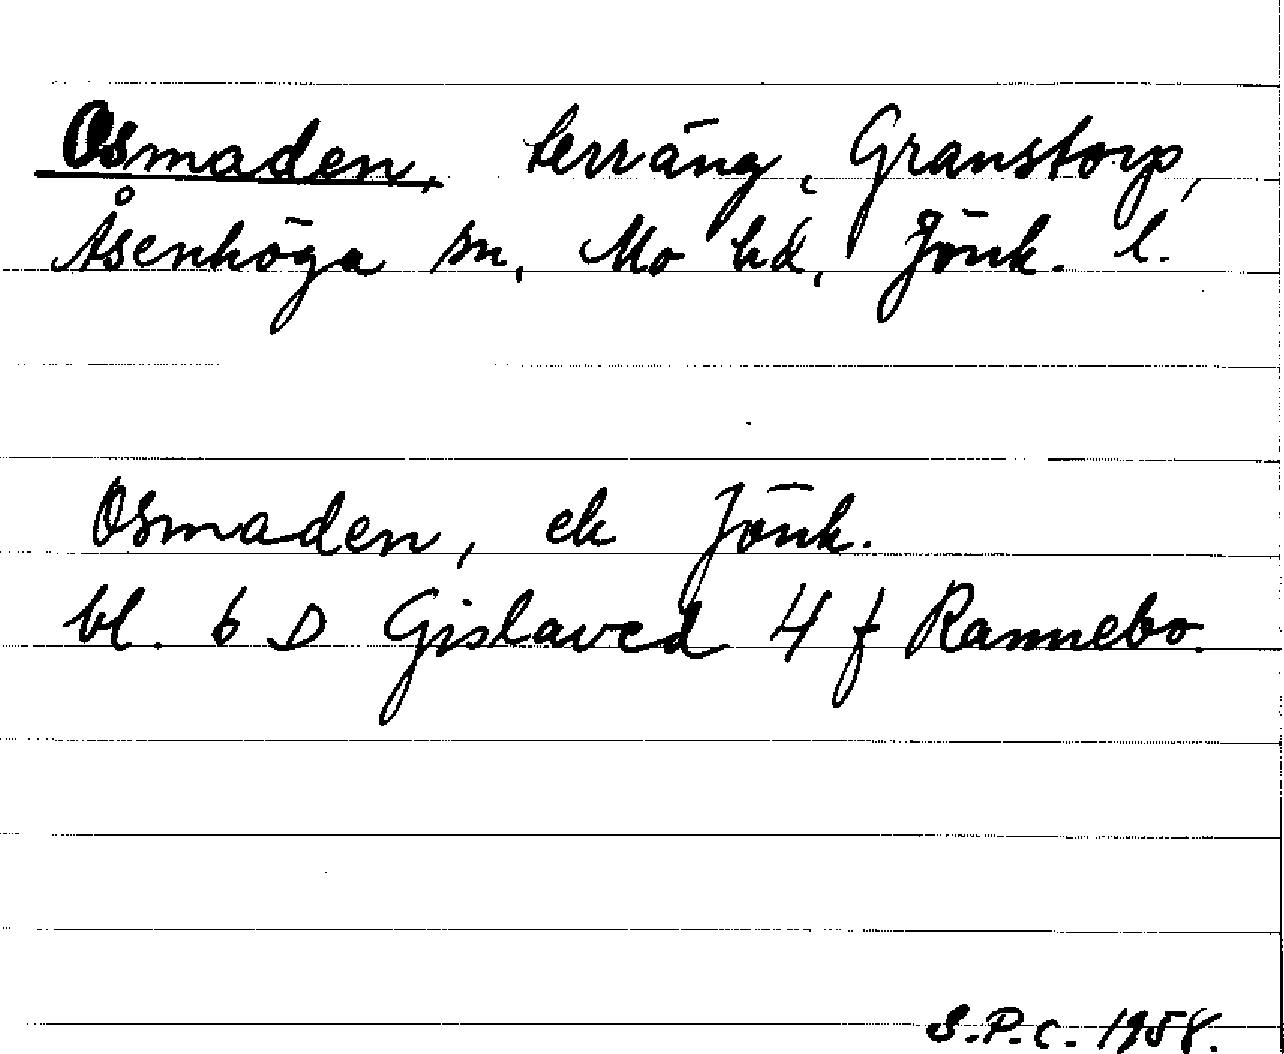 Osmaden, terräng, Granstorp,
Åsenhöga sn, Mo hd, Jönk. l.
Osmaden, ek Jönk.
bl. 6 D Gislaved 4 f Rannebo.
S.P.C. 1958.